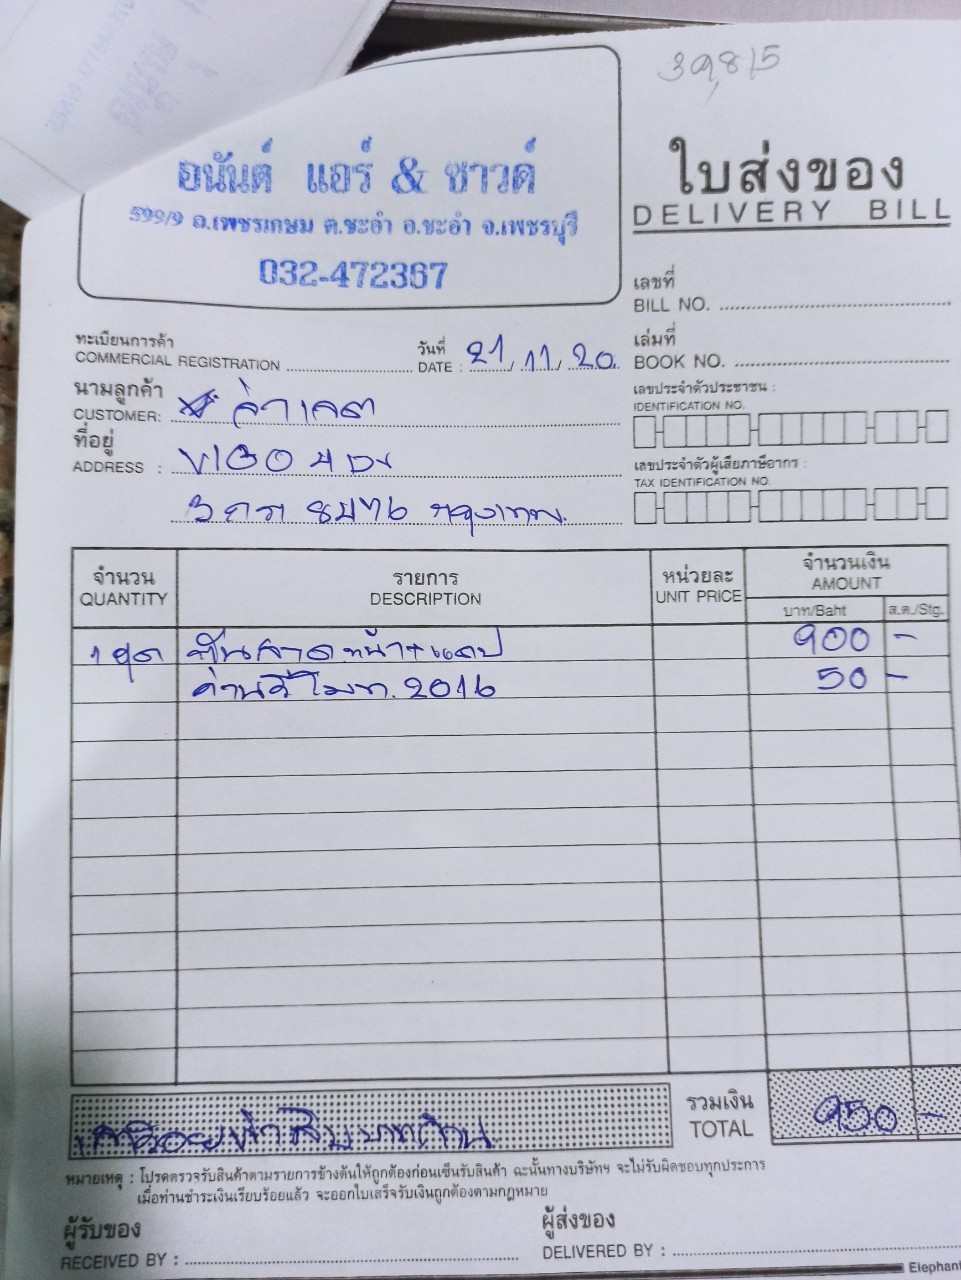 39,815
อนันต์ แอร์ & ซาวด์
599/9 ถ.เพชรเกษม ต.ชะอำ อ.ชะอำ จ.เพชรบุรี
032-472367
ใบส่งของ
DELIVERY BILL
เลขที่
BILL NO.
ทะเบียนการค้า
COMMERCIAL REGISTRATION
วันที่
DATE : 21/11/20
เล่มที่
BOOK NO.
นามลูกค้า
CUSTOMER:
เลขประจำตัวประชาชน :
IDENTIFICATION NO.
ที่อยู่
ADDRESS : VIGO 4
เลขประจำตัวผู้เสียภาษีอากร :
TAX IDENTIFICATION NO.
3 กท 8476 กรุงเทพ
จำนวน
QUANTITY
รายการ
DESCRIPTION
หน่วยละ
UNIT PRICE
จำนวนเงิน
AMOUNT
บาท/Baht
ส.ต./Stg.
1 ชุด หน้า+ 900 -
รีโมท. 2016 50 -
เก้าร้อยห้าสิบบาทถ้วน
รวมเงิน
TOTAL 950 -
หมายเหตุ : โปรดตรวจรับสินค้าตามรายการข้างต้นให้ถูกต้องก่อนเซ็นรับสินค้า ฉะนั้นทางบริษัทฯ จะไม่รับผิดชอบทุกประการ
เมื่อท่านชำระเงินเรียบร้อยแล้ว จะออกใบเสร็จรับเงินถูกต้องตามกฎหมาย
ผู้รับของ
RECEIVED BY :
ผู้ส่งของ
DELIVERED BY :
Elephant